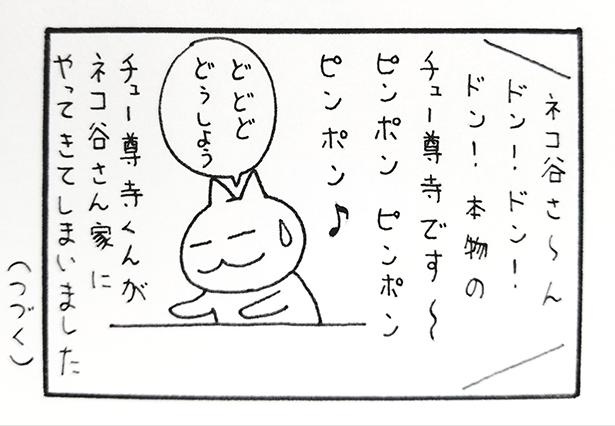 ネコ谷さ〜ん
ドン！ドン！
ドン！本物の
チュー尊寺です〜
ピンポン ピンポン
ピンポン♪
どどど
どうしよう
チュー尊寺くんが
ネコ谷さん家に
やってきてしまいました
(つづく)